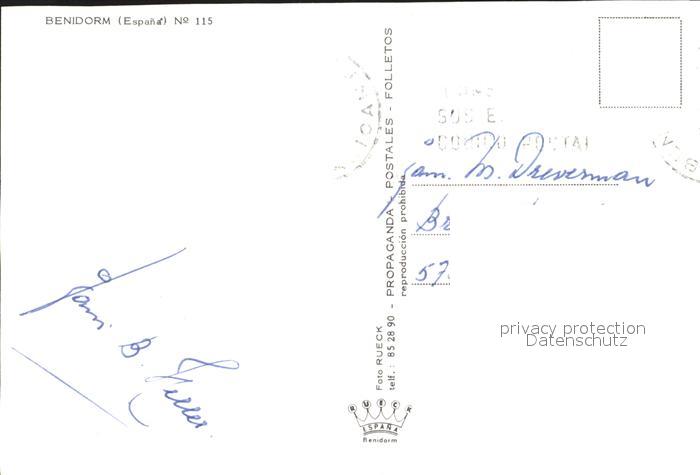 BENIDORM (España) Nº 115
Fam. B. Hiller
Foto RUECK
telf.: 85 28 90 - PROPAGANDA - POSTALES - FOLLETOS
reproducción prohibida
RUECK
ESPAÑA
Benidorm
SUS E
CODIGO POSTAL
Fam. M. Dreverman
Br
57
privacy protection
Datenschutz